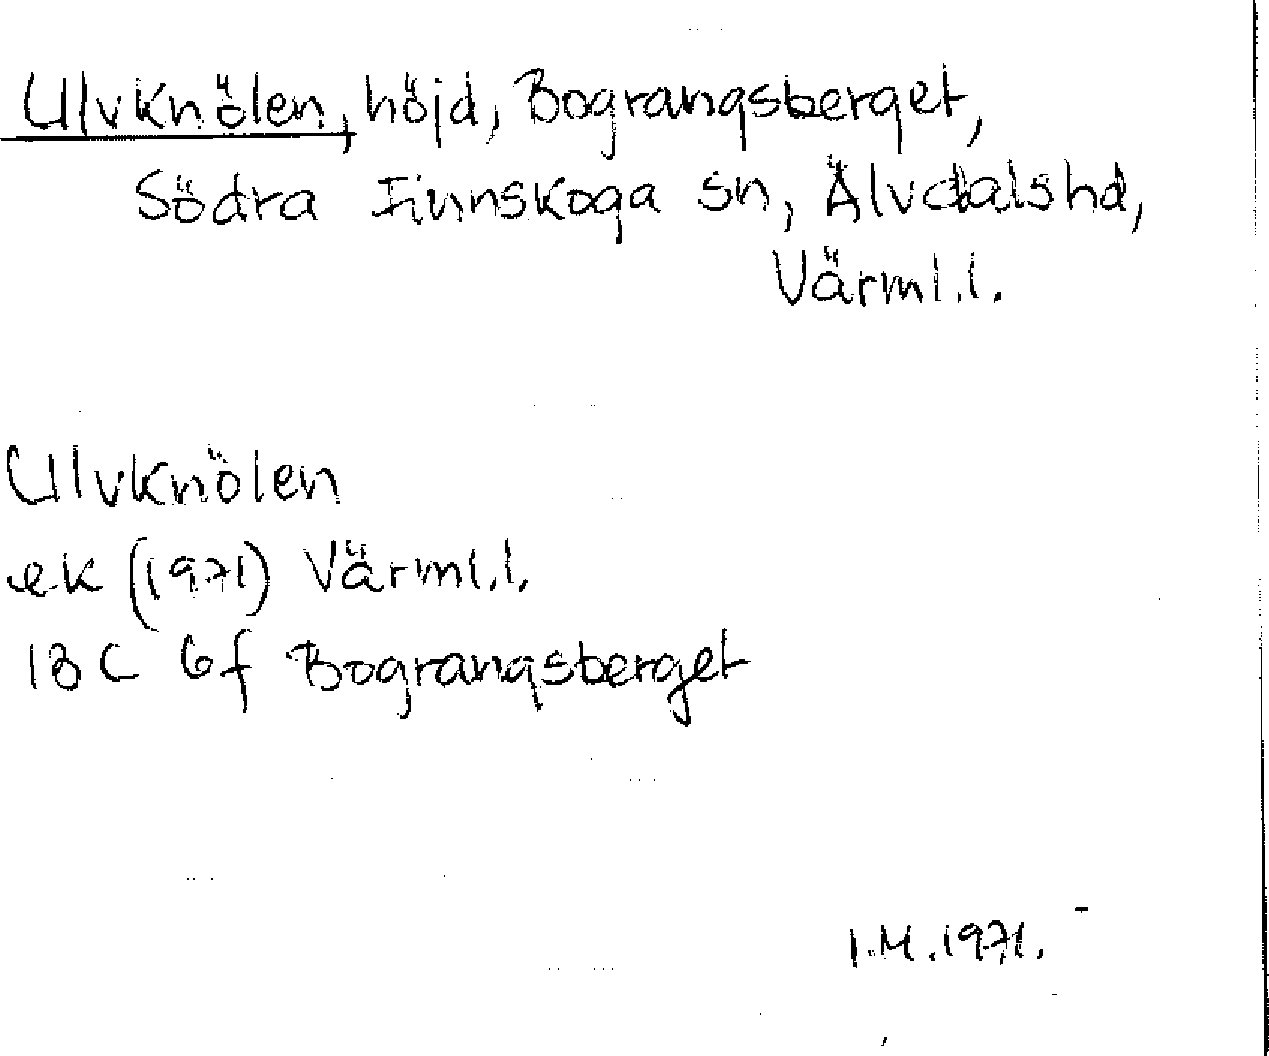 Ulvknölen, höjd, Bograngsberget,
Södra Finnskoga sn, Älvdalshd,
Värml.l.
Ulvknölen
ek (1971) Värml.l.
13 C 6f Bograngsberget
I.M.1971.